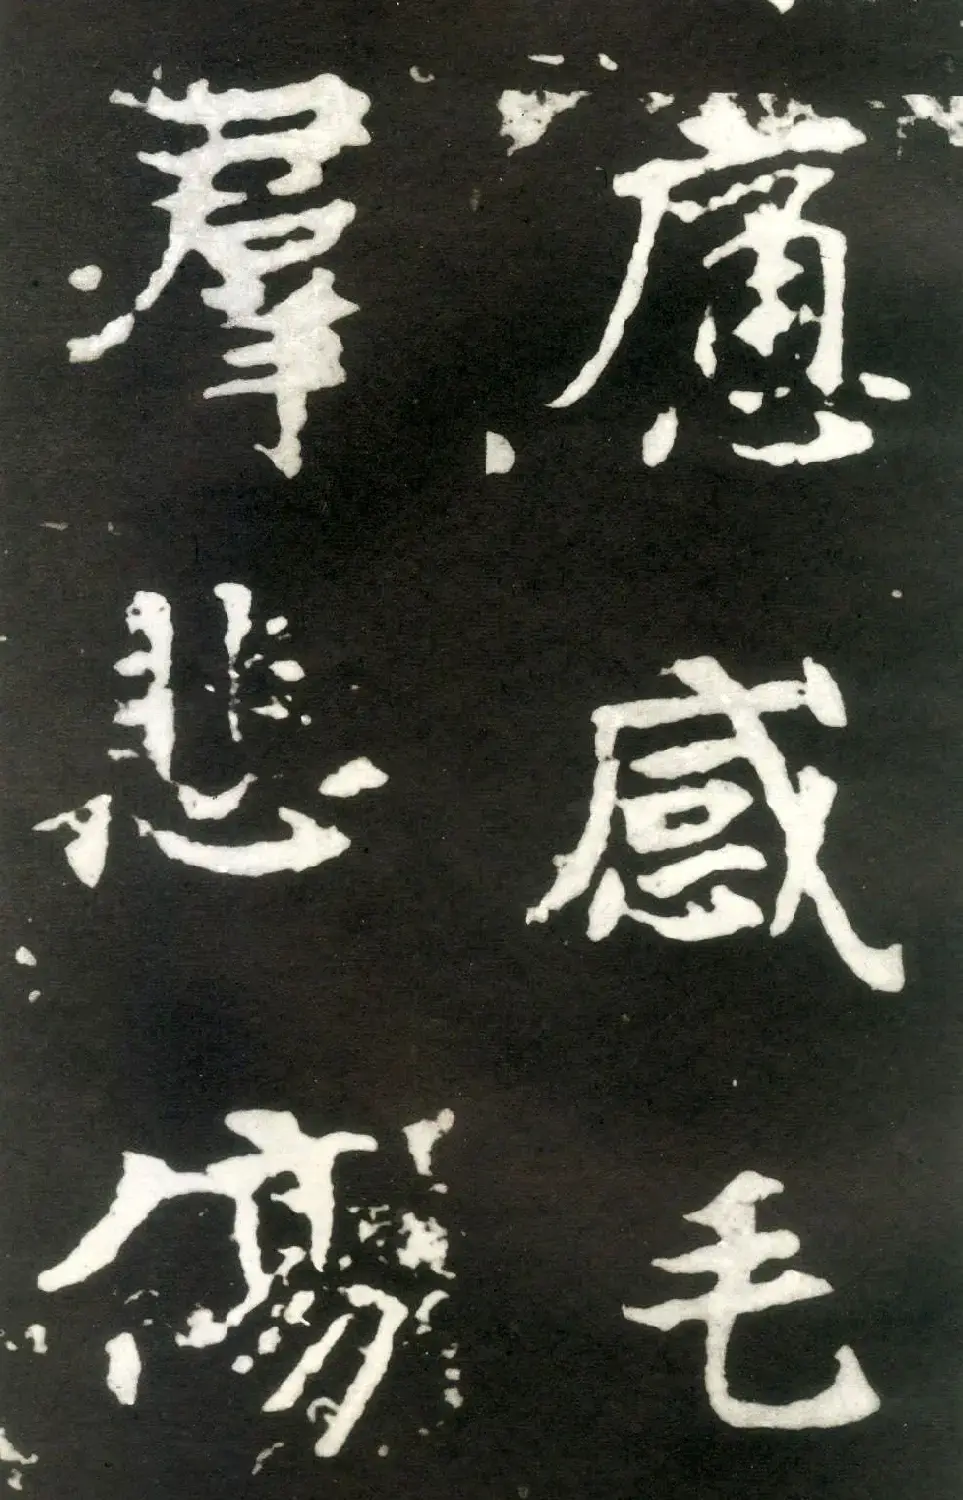 感毛
羣悲傷